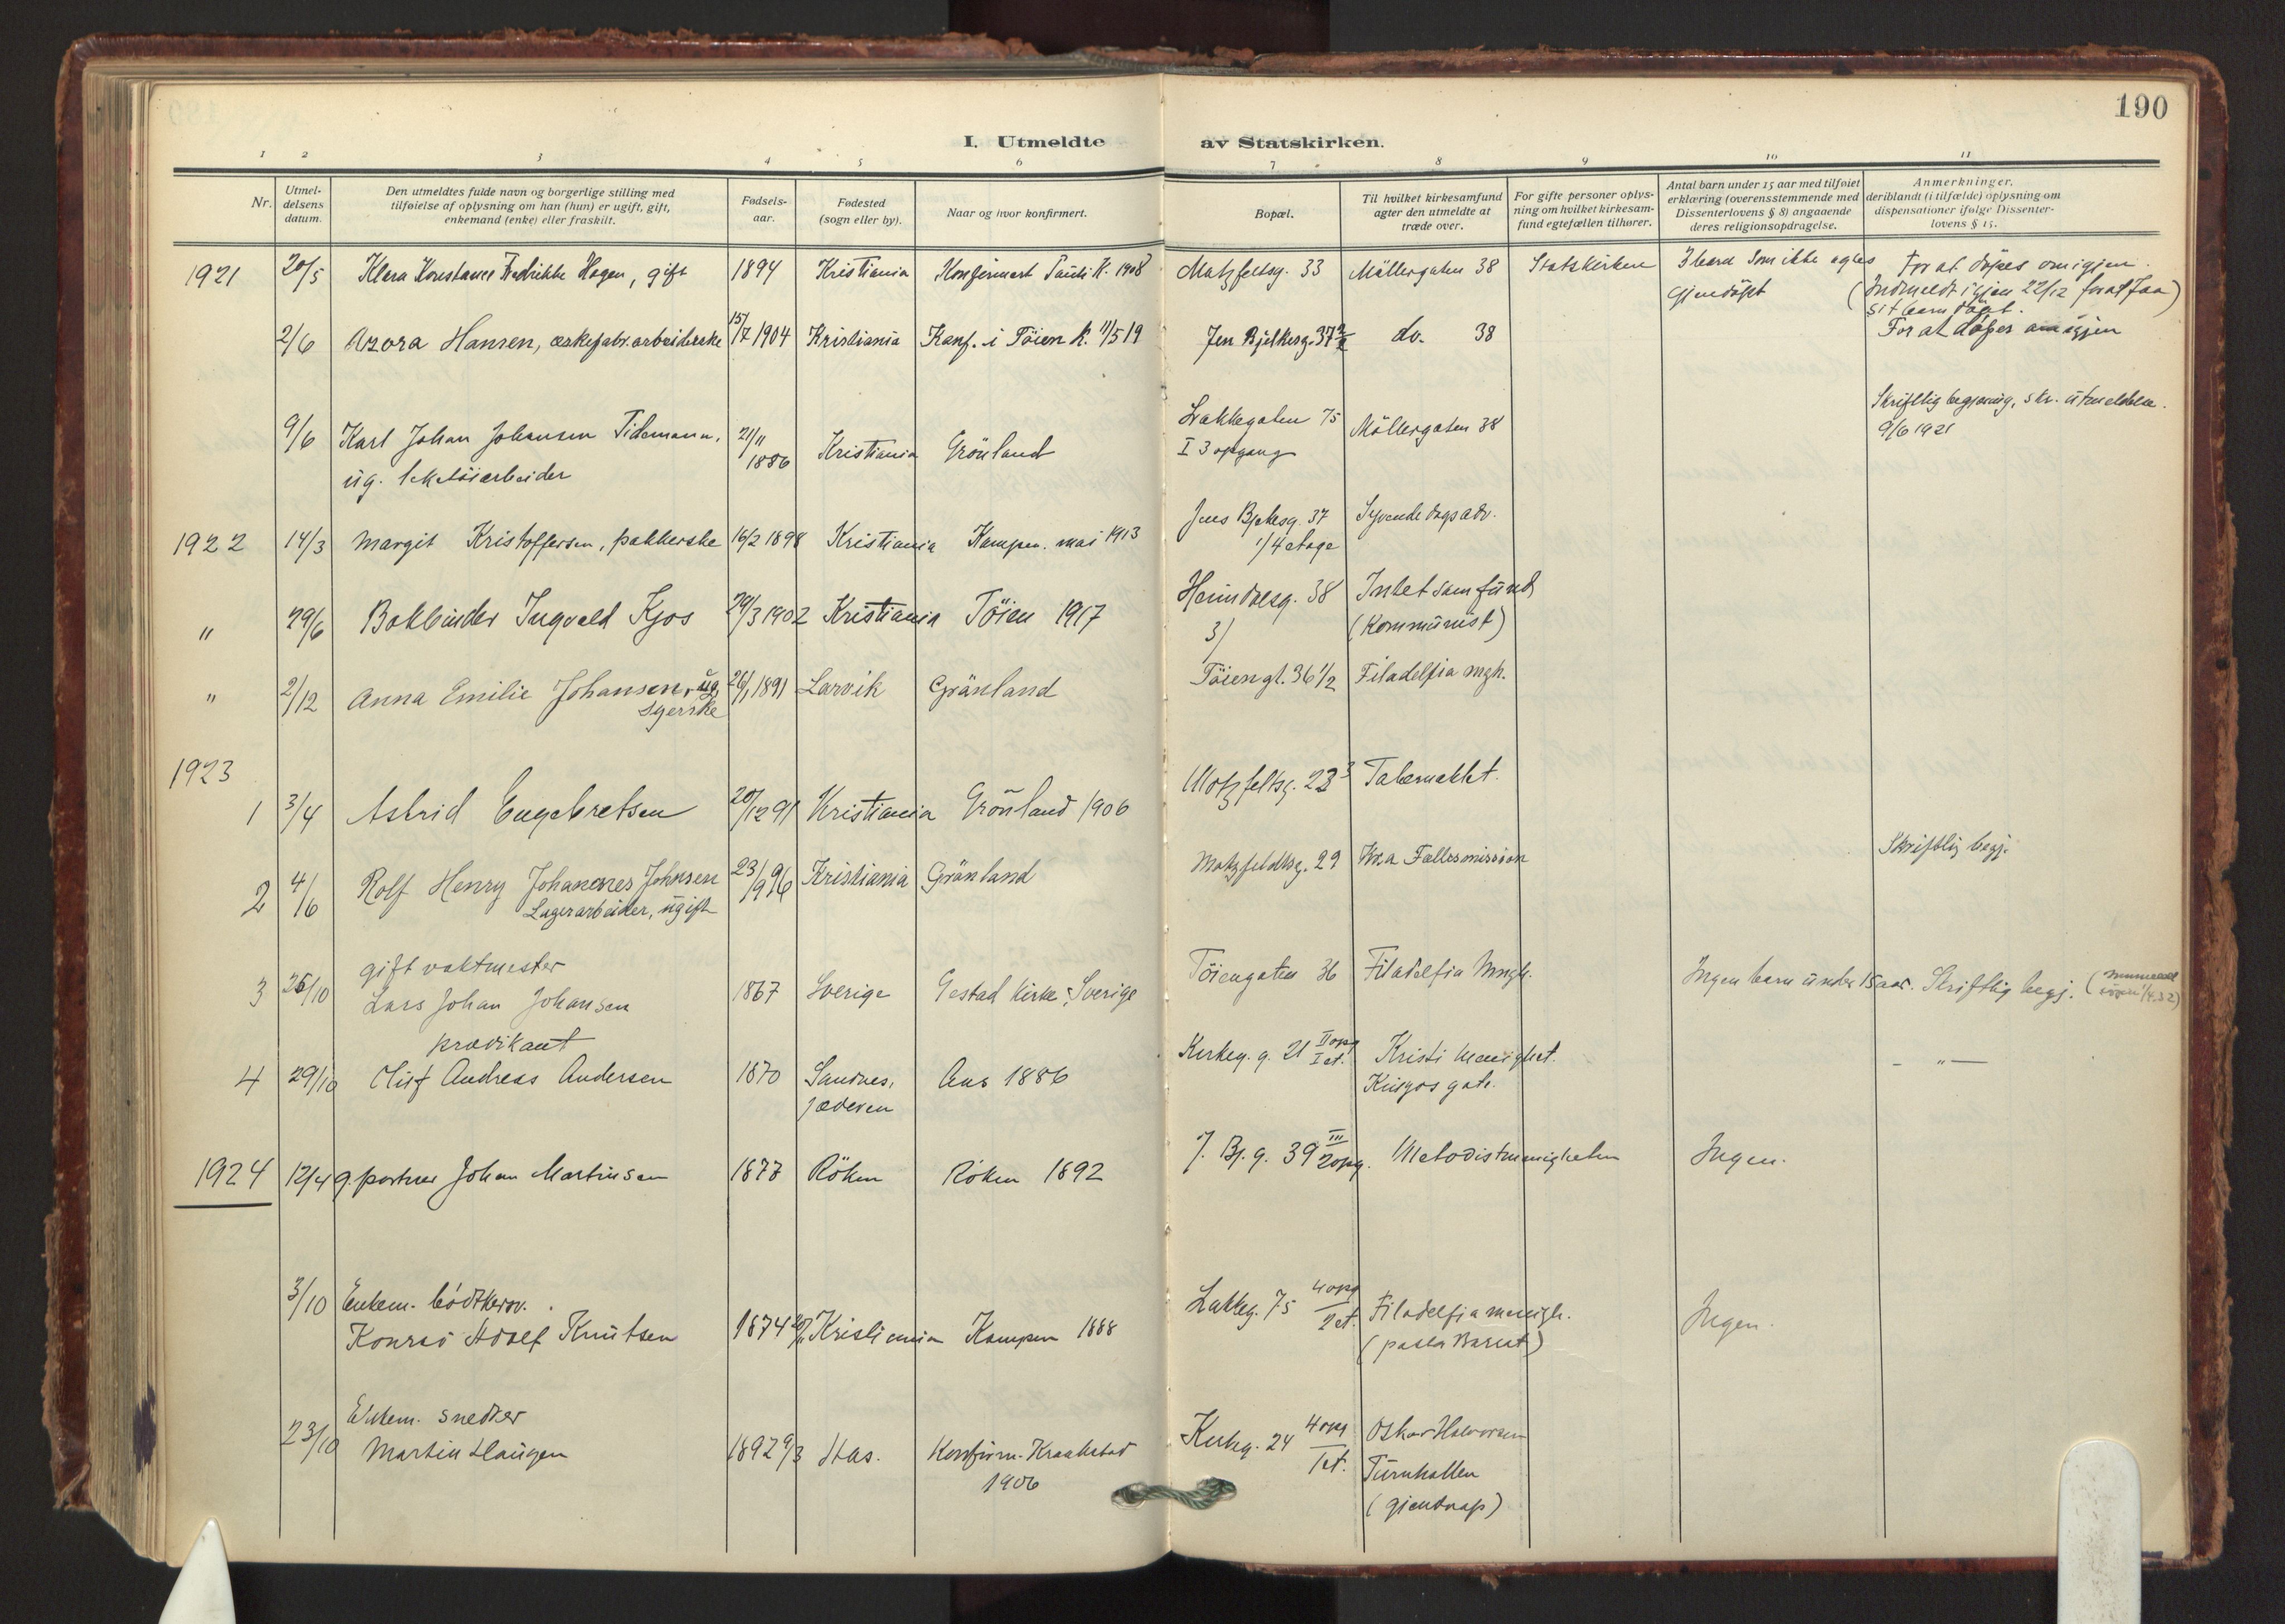 190
I. Utmeldte av Statskirken.
1 2 3 4 5 6 7 8 9 10 11
Nr.
Utmel-
delsens
datum.
Den utmeldtes fulde navn og borgerlige stilling med
tilføielse af oplysning om han (hun) er ugift, gift,
enkemand (enke) eller fraskilt.
Fødsels-
aar.
Fødested
(sogn eller by).
Naar og hvor konfirmert.
Bopæl.
Til hvilket kirkesamfund
agter den utmeldte at
træde over.
For gifte personer oplys-
ning om hvilket kirkesam-
fund egtefællen tilhører.
Antal barn under 15 aar med tilføiet
erklæring (overensstemmende med
Dissenterlovens § 8) angaaende
deres religionsopdragelse.
Anmerkninger,
deriblandt (i tilfælde) oplysning om
dispensationer ifølge Dissenter-
lovens § 15.
1921 20/5 Klara Konstance Fredrikke Hagen, gift 1894 Kristiania Konfirmert Pauli K. 1908 Motzfeltsg. 33 Möllergaten 38 Statskirken 3 barn som ikke agtes
gjendöpt
For at döpes om igjen.
(Indmeldt igjen 22/12 for at faa)
sit barn döpt.
2/6 Azora Hansen, æskefabr.arbeiderske 15/7 1904 Kristiania Konf. i Töien K. 11/5 19 Jen Bjelkesg. 37 do. 38 For at döpes om igjen
9/6 Karl Johan Johansen Tidemann,
ug. leketöiarbeider
21/11
1886
Kristiania Grönland
Lakkegaten 75
I 3 opgang
Möllergaten 38
Skriftlig begjæring, skr. utmeldelse.
9/6 1921
1922 14/3 Margit Kristoffersen, pakkerske 16/2 1898 Kristiania Kampen. mai 1913
Jens Bjelkesg. 37
1/4 etage
Syvende dags adv.
" 29/6 Bokbinder Ingvald Kjos 29/3 1902 Kristiania Töien 1917
Heimdalsg. 38
3/
Intet samfund
(Kommunist)
" 2/12 Anna Emilie Johansen, ug.
syerske
26/1 1891 Larvik Grönland Töiengt. 36 1/2 Filadelfia mgh.
1923
1 3/4 Astrid Engebretsen 20/12 91 Kristiania Grönland 1906 Motzfeltsg. 23 3 Tabernaklet.
2 4/6 Rolf Henry Johannes Johnsen
Lagerarbeider, ugift
23/9 96 Kristiania Grönland Motzfeldtsg. 29 Kr.a Fællesmission Skriftlig begj.
3 25/10 gift vaktmester
Lars Johan Johansen
1867 Sverige Gestad Kirke, Sverige Töiengaten 36 Filadelfia Mngh. Ingen barn under 15 aar. Skriftlig begj.
4 29/10 prædikant
Olif Andreas Andersen
1870 Sandnes,
Jæderen
Aas 1886
Kirkeg. g. 21 II opg
I et.
Kristi Menighet.
Kingos gate.
- " -
1924 12/4 g. portner Johan Martinsen 1877 Röken Röken 1892 J. Bj. g. 39 III
2 opg.
Metodistmenigheten Ingen.
3/10 Enkem. bödkersv.
Konrad Adolf Knutsen
1874 Kristiania Kampen 1888
Lakkeg. 75 4 opg
2 et.
Filadelfia menigh.
(pastor Barrat)
Ingen.
23/10 Enkem. snedker
Martin Haugen
1892 9/3 Aas. Konfirm. Kraakstad
1906
Kirkeg. 24 4 opg
I et.
Oskar Halvorsen
Turnhallen
(gjendaap)